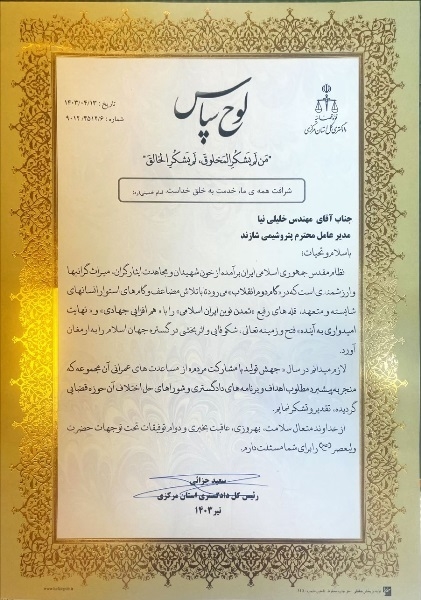 قوه قضائیه
دادگستری کل استان مرکزی
تاریخ : ۱۴۰۳/۰۴/۱۳
شماره : ۹۰۱۲/۲۵۱۲/۶
لوح سپاس
"مَن لَم یَشکُرِ المَخلوق، لَم یَشکُرِ الخالِق"
شرافت همه ی ما، خدمت به خلق خداست. امام خمینی(ره)
جناب آقای مهندس خلیلی نیا
مدیرعامل محترم پتروشیمی شازند
با سلام و تحیات؛
نظام مقدس جمهوری اسلامی ایران برآمده از خون شهیدان و مجاهدت ایثارگران، میراث گرانبها
و ارزشمندی است که در «گام دوم انقلاب» می‌رود تا با تلاش مضاعف و گام‌های استوار انسانهای
شایسته و متعهد، قله‌های رفیع «تمدن نوین ایران اسلامی» را با «هم افزایی جهادی» و «نهایت
امیدواری به آینده» فتح و زمینه تعالی، شکوفایی و اثربخشی در گستره جهان اسلام را به ارمغان
آورد.
لازم میدانم در سال «جهش تولید با مشارکت مردم» از مساعدت های عمرانی آن مجموعه که
منجر به پیشبرد مطلوب اهداف و برنامه های دادگستری و شوراهای حل اختلاف آن حوزه قضایی
گردیده، تقدیر و تشکر نمایم.
از خداوند متعال سلامت، بهروزی، عاقبت بخیری و دوام توفیقات تحت توجهات حضرت
ولیعصر (عج) را برای شما مسئلت دارم.
سعید جزائی
رئیس کل دادگستری استان مرکزی
تیر ۱۴۰۳